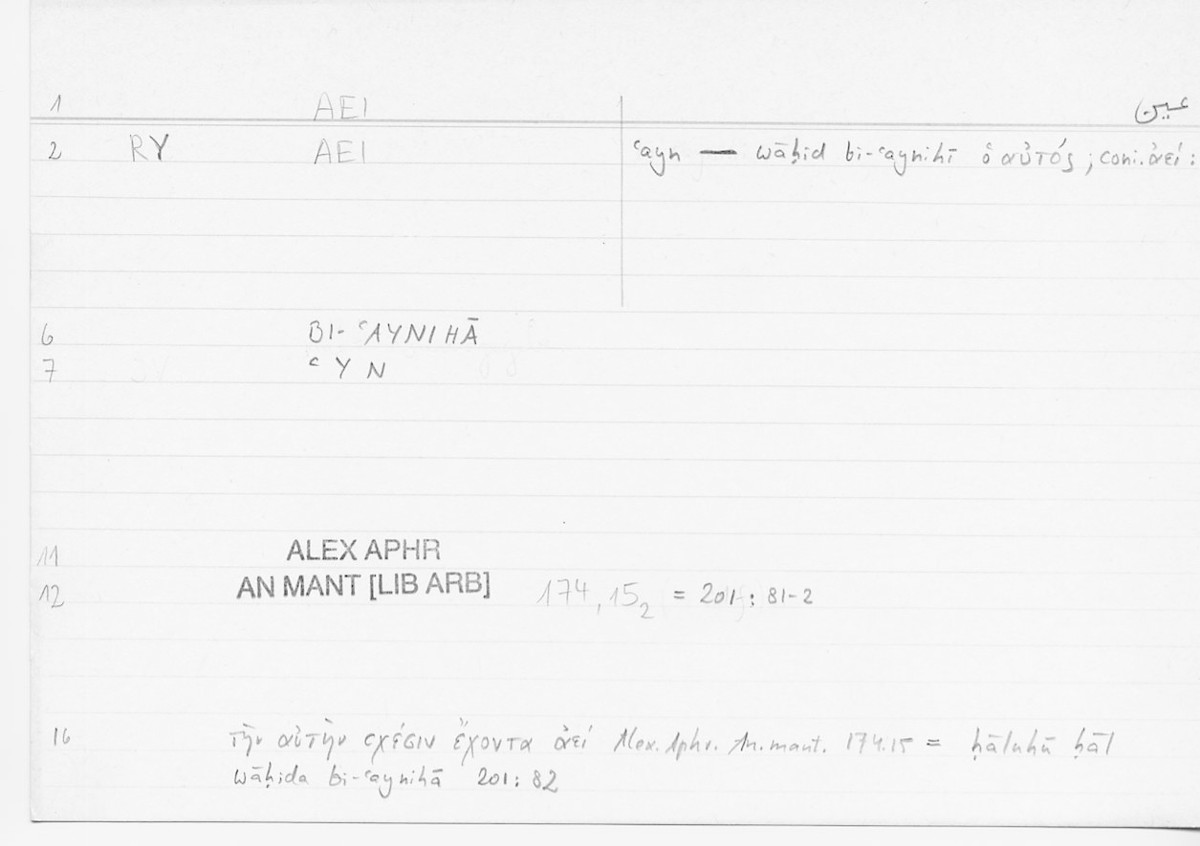 1 AEI عين
2 RY AEI ʿayn — wāḥid bi-ʿaynihī ὁ αὐτός; coni. ἀεί:
6 BI-ʿAYNIHĀ
7 ʿYN
11 ALEX APHR
12 AN MANT [LIB ARB] 174,15₂ = 201: 81-2
16 τὴν αὐτὴν σχέσιν ἔχοντα ἀεί Alex. Aphr. An. mant. 174.15 = ḥāluhū ḥāl
wāḥida bi-ʿaynihā 201: 82